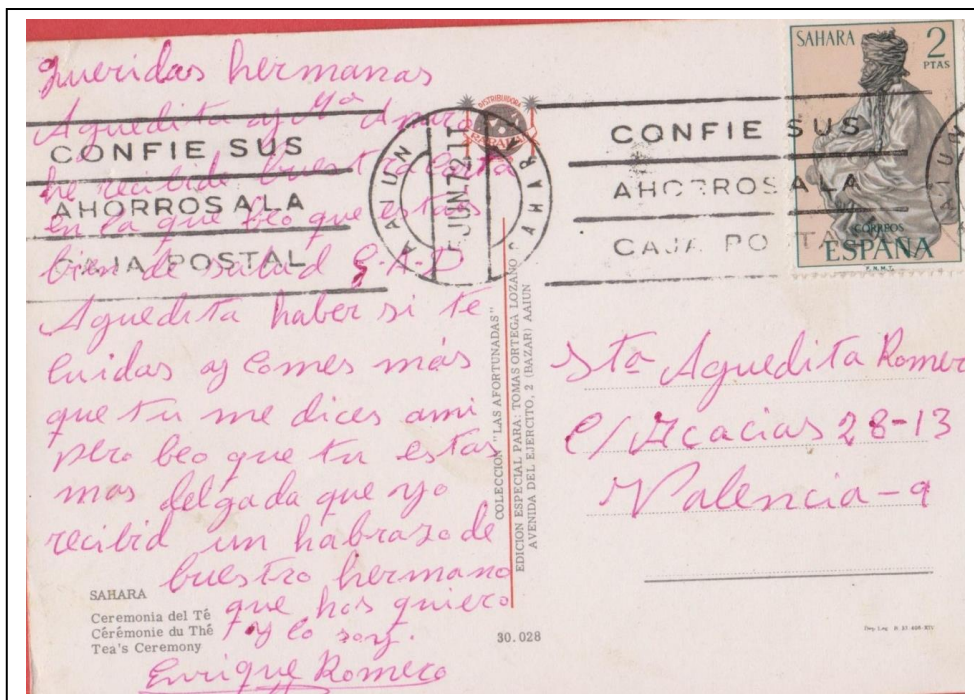 Queridas hermanas
Aguedita y Mª Amparo
he recibido buestra carta
en la que beo que estais
bien de salud G-A-D
Aguedita haber si te
cuidas y comes más
que tu me dices ami
pero beo que tu estas
mas delgada que yo
recibid un habraso de
buestro hermano
que hos quiere
y lo soy.
Enrique Romero
CONFIE SUS
AHORROS A LA
CAJA POSTAL
AAIUN
JUN 72
SAHARA
DISTRIBUIDORA
CONFIE SUS
AHORROS A LA
CAJA POSTAL
SAHARA 2
PTAS
CORREOS
ESPAÑA
F.N.M.T.
AAIUN
COLECCION "LAS AFORTUNADAS"
EDICION ESPECIAL PARA: TOMAS ORTEGA LOZANO
AVENIDA DEL EJERCITO, 2 (BAZAR) AAIUN
Sta Aguedita Romer
C/ Acacias 28-13
Valencia-9
SAHARA
Ceremonia del Té
Cérémonie du Thé
Tea's Ceremony
30.028